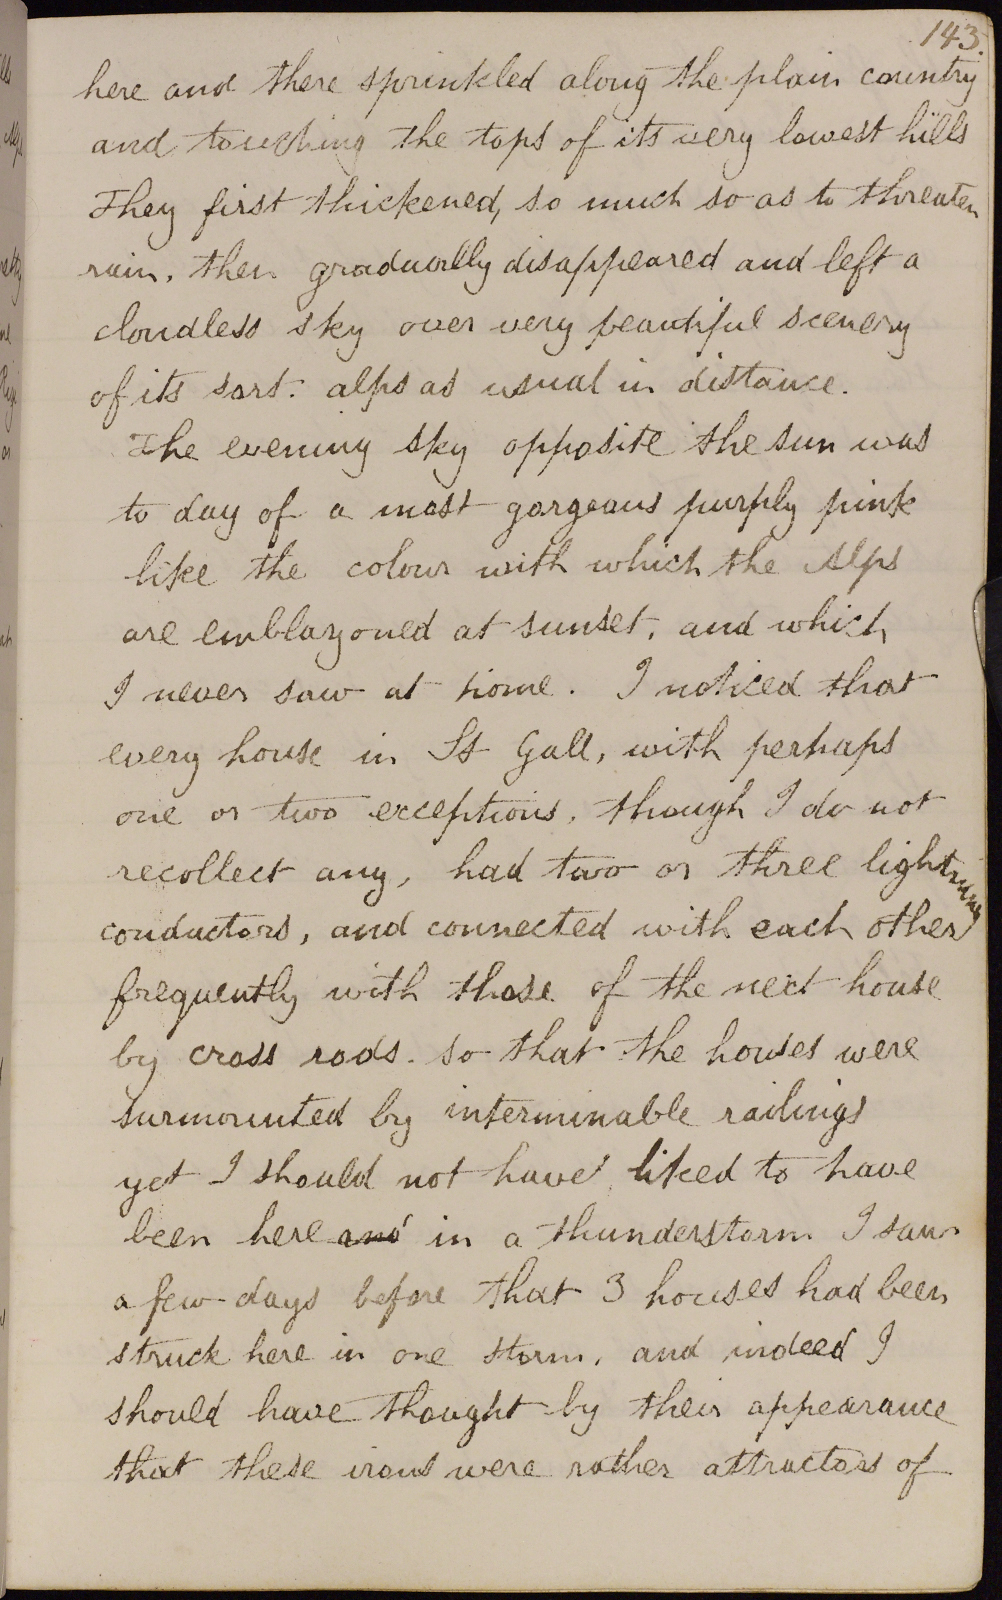 143.
here and there sprinkled along the plain country
and touching the tops of its very lowest hills
They first thickened, so much so as to threaten
rain, then gradually disappeared and left a
cloudless sky over very beautiful scenery
of its sort. alps as usual in distance.
The evening sky opposite the sun was
to day of a most gorgeous purply pink
like the colour with which the Alps
are emblazoned at sunset, and which
I never saw at home. I noticed that
every house in St Gall, with perhaps
one or two exceptions, though I do not
recollect any, had two or three lightning
conductors, and connected with each other
frequently with those of the next house
by cross rods. so that the houses were
surmounted by interminable railings
yet I should not have liked to have
been here and in a thunderstorm I saw
a few days before that 3 houses had been
struck here in one storm, and indeed I
should have thought by their appearance
that these irons were rather attractors of